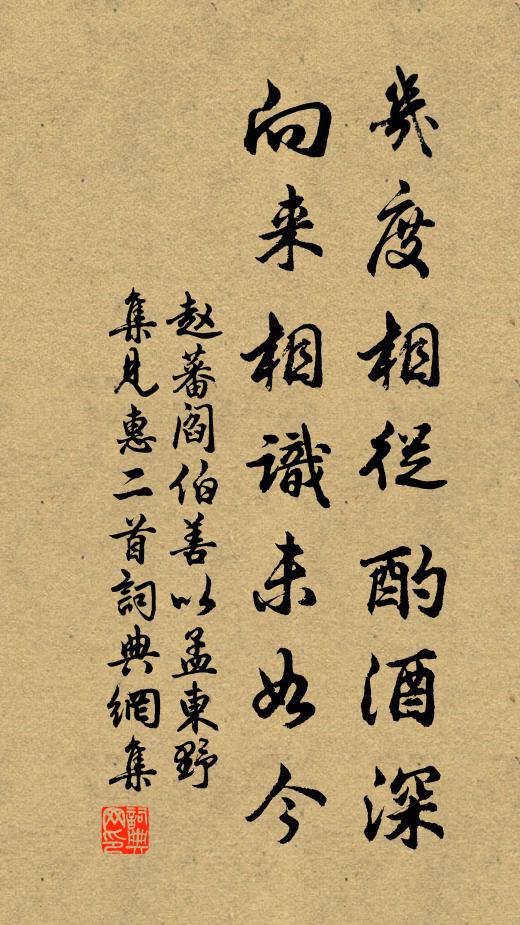 几度相從酌酒深
向来相識未如今
赵蕃阎伯善以孟東野
集見惠二首詞典網集
詞典
网印